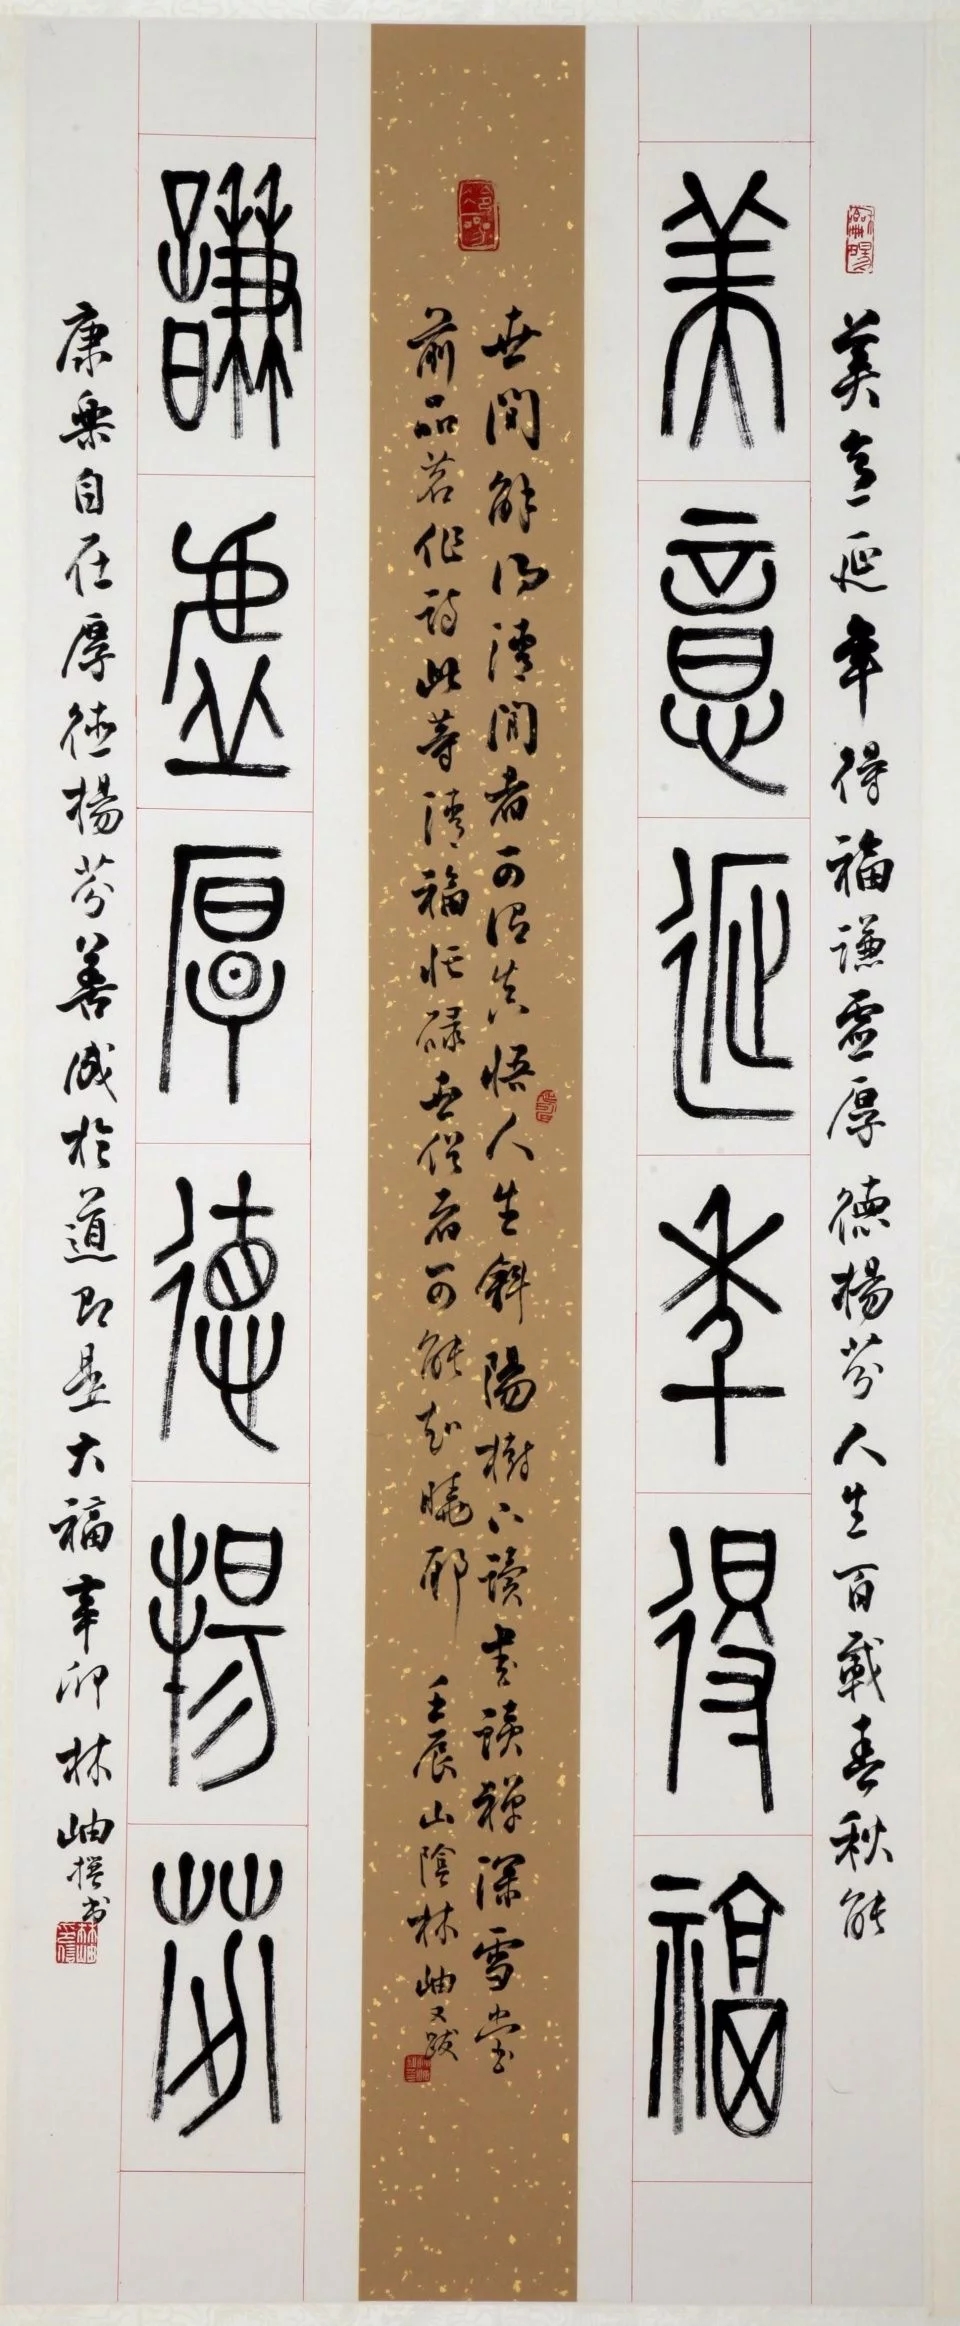 美意延年得福謙虛厚德揚芬人生百載春秋能
美意延年得福
世間解得清閒者可謂真悟人生斜陽樹下讀書讀禪深雪堂
前品茗作詩此等清福忙碌世俗者可能知曉耶 壬辰山陰林岫又跋
謙虛厚德揚芬
康樂自在厚德揚芬善成於道即是大福辛卯林岫撰書